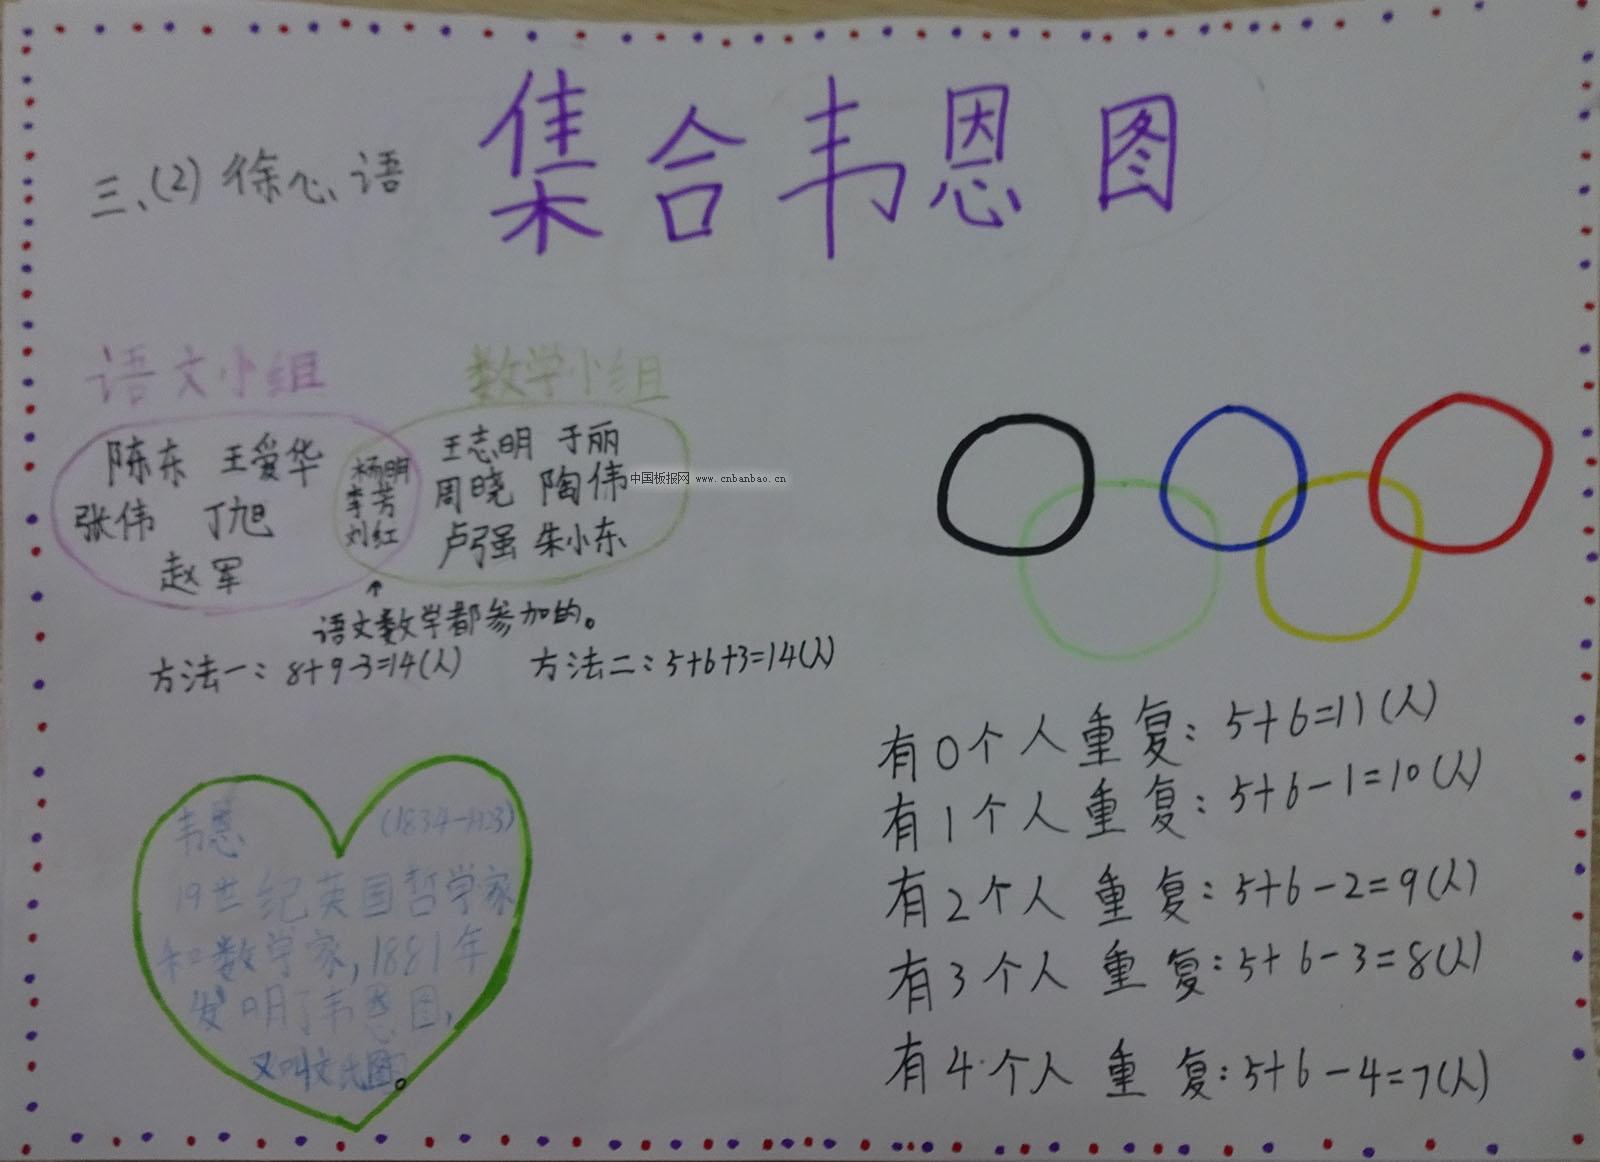 集合韦恩图
三、(2) 徐心语
语文小组
数学小组
陈东 王爱华
张伟 丁旭
赵军
杨明
李芳
刘红
王志明 于丽
周晓 陶伟
卢强 朱小东
中国板报网 www.cnbanbao.cn
↑
语文数学都参加的。
方法一：8+9-3=14(人)
方法二：5+6+3=14(人)
韦恩 (1834-1923)
19世纪英国哲学家
和数学家,1881年
发明了韦恩图,
又叫文氏图。
有0个人重复：5+6=11(人)
有1个人重复：5+6-1=10(人)
有2个人重复：5+6-2=9(人)
有3个人重复：5+6-3=8(人)
有4个人重复：5+6-4=7(人)